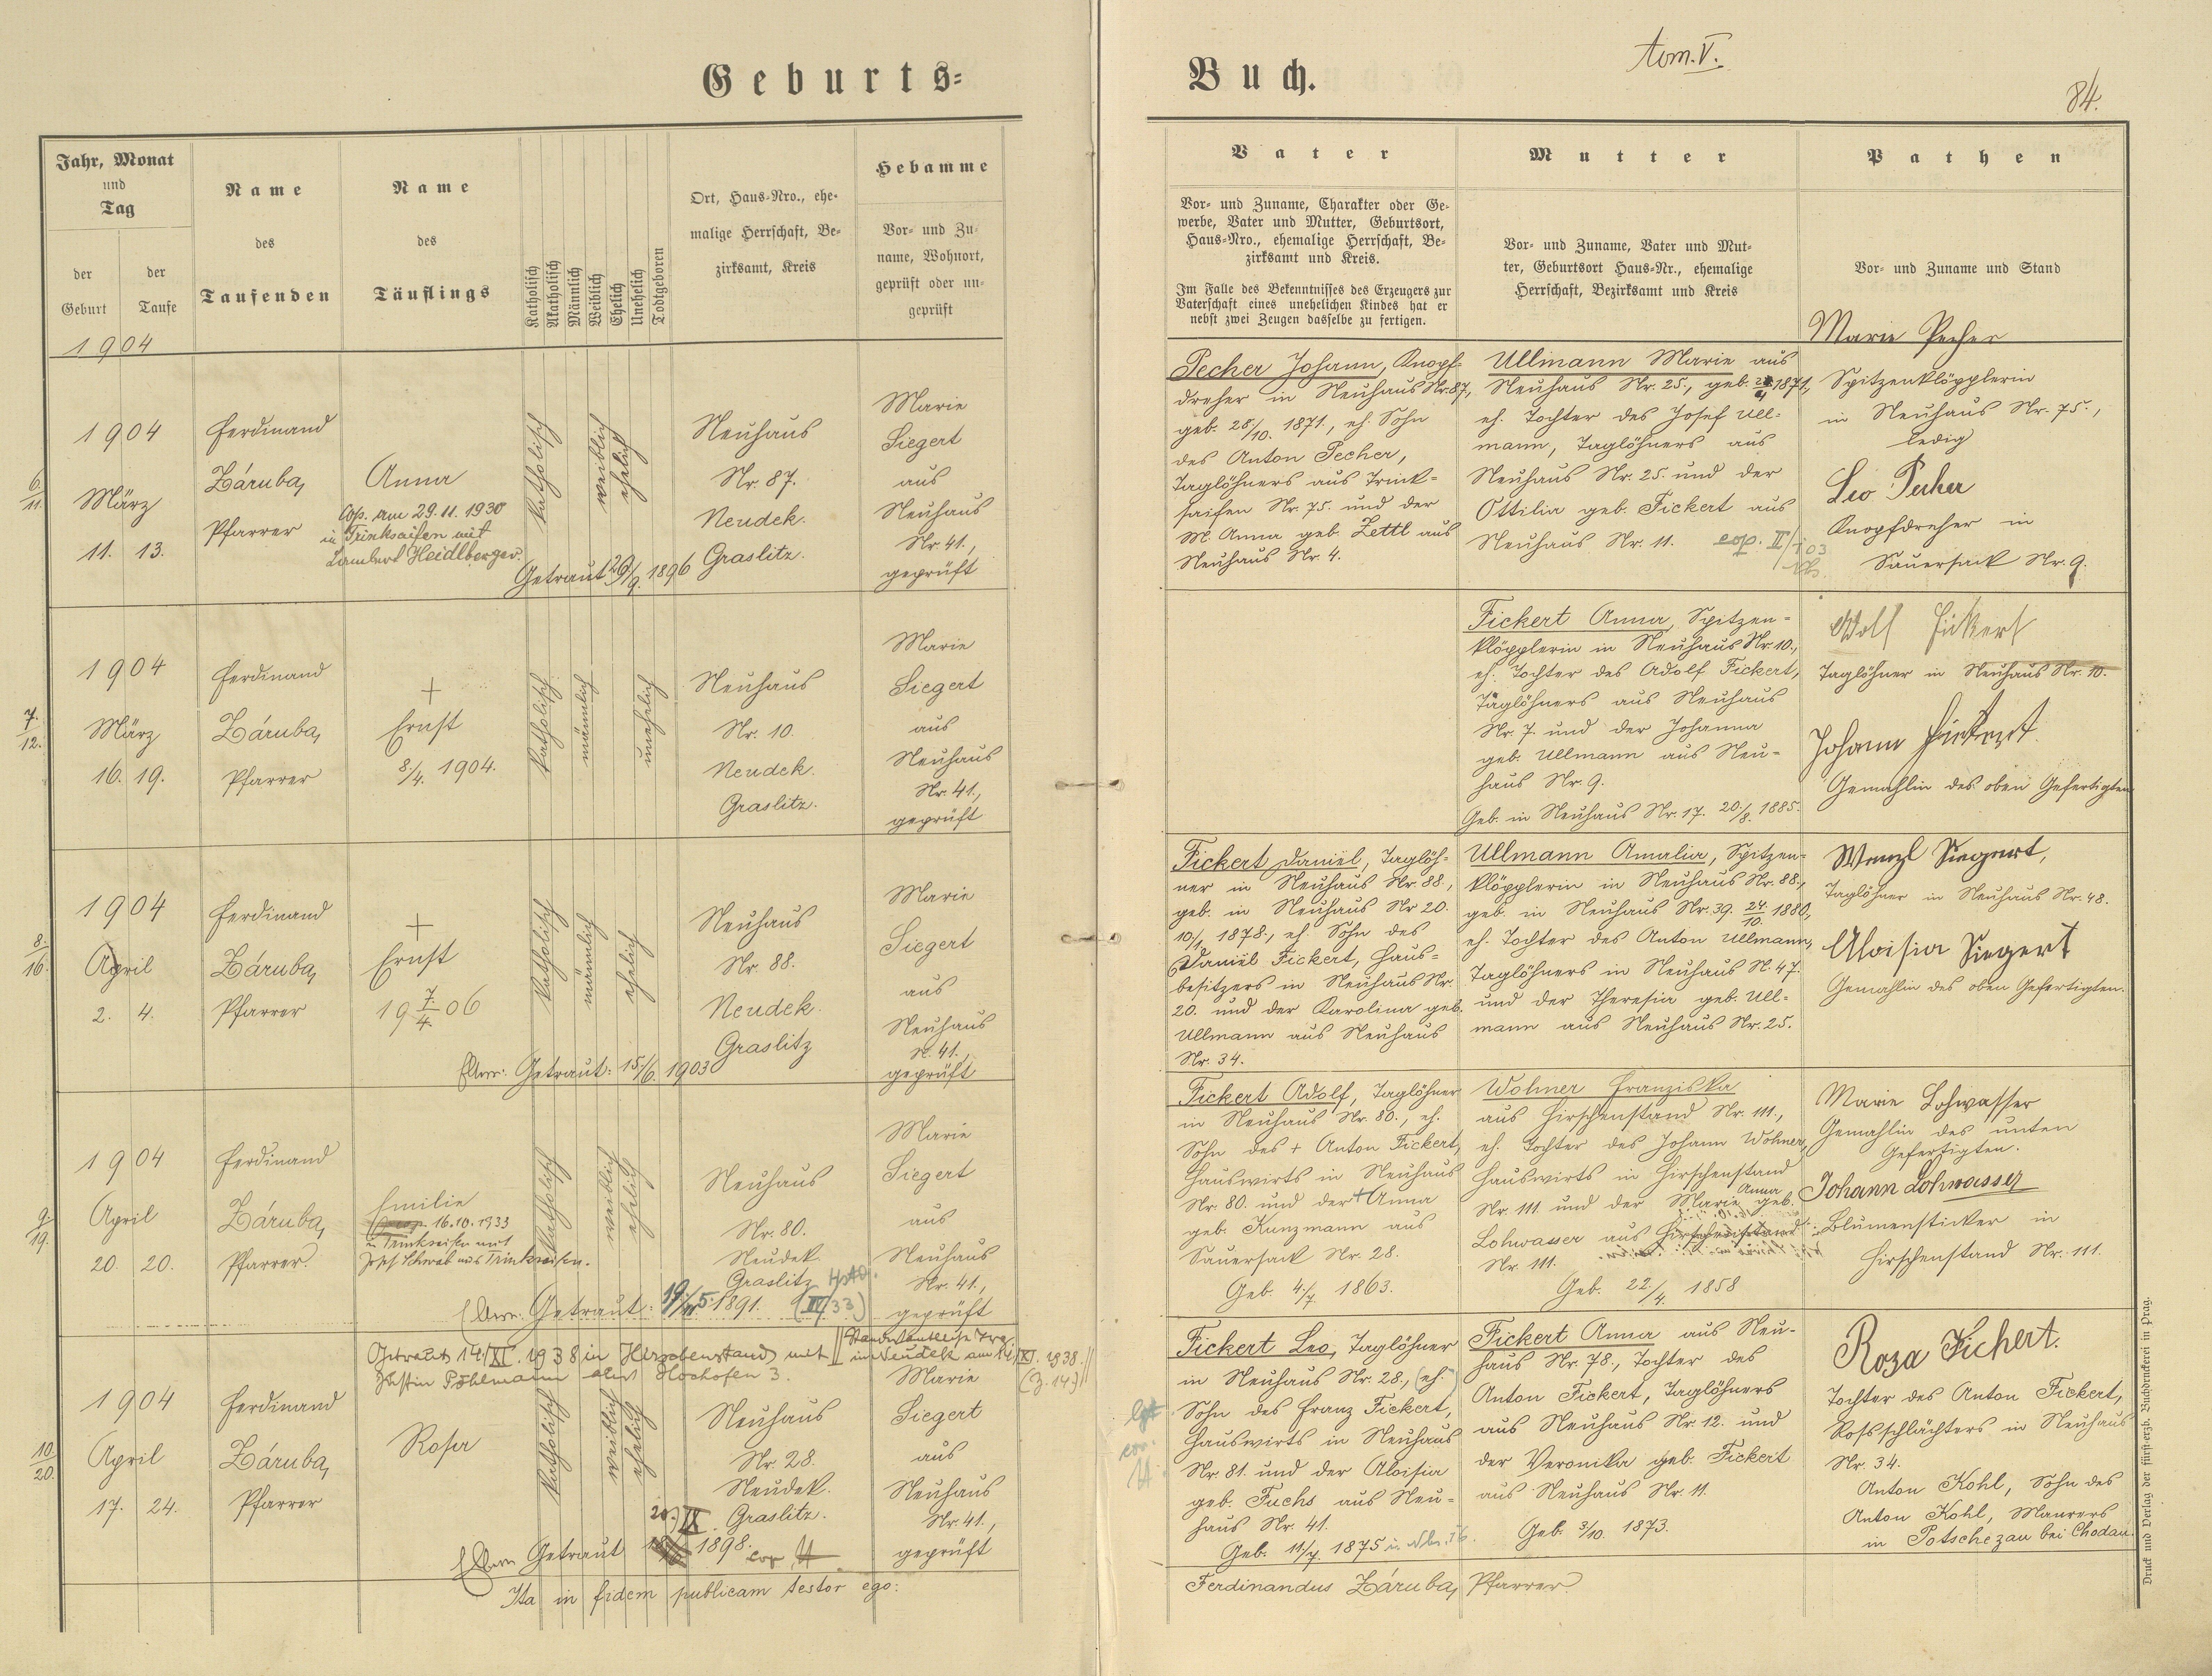 Geburts-
Buch.
tom. V.
84.
Jahr, Monat
und
Tag
der
Geburt
der
Taufe
1904
Name
des
Taufenden
Name
des
Täuflings
Katholisch
Akatholisch
Männlich
Weiblich
Ehelich
Unehelich
Todtgeboren
Ort, Haus-Nro., ehe-
malige Herrschaft, Be-
zirksamt, Kreis
Hebamme
Vor- und Zu-
name, Wohnort,
geprüft oder un-
geprüft
Vater
Vor- und Zuname, Charakter oder Ge-
werbe, Vater und Mutter, Geburtsort,
Haus-Nro., ehemalige Herrschaft, Be-
zirksamt und Kreis.
Im Falle des Bekenntnisses des Erzeugers zur
Vaterschaft eines unehelichen Kindes hat er
nebst zwei Zeugen dasselbe zu fertigen.
Mutter
Vor- und Zuname, Vater und Mut-
ter, Geburtsort Haus-Nr., ehemalige
Herrschaft, Bezirksamt und Kreis
Pathen
Vor- und Zuname und Stand
6.
11.
1904
März
11. 13.
Ferdinand
Záruba,
Pfarrer
Anna
Cop. am 29.11.1930
in Trinksaifen mit
Lambert Heidlberger.
Katholisch
weiblich
ehelich
Getraut 29/9. 1896
Neuhaus
Nr. 87.
Neudek.
Graslitz.
Marie
Siegert
aus
Neuhaus
Nr. 41.,
geprüft
Pecher Johann, Knopf-
dreher in Neuhaus Nr. 87.,
geb. 28/10. 1871., eh. Sohn
des Anton Pecher,
Taglöhners aus Trink-
saifen Nr. 75. und der
M. Anna geb. Zettl aus
Neuhaus Nr. 4.
Ullmann Marie aus
Neuhaus Nr. 25., geb. 1871.,
eh. Tochter des Josef Ull-
mann, Taglöhners aus
Neuhaus Nr. 25. und der
Ottilia geb. Fickert aus
Neuhaus Nr. 11.
Marie Pecher
Spitzenklöpplerin
in Neuhaus Nr. 75.,
ledig
Leo Pecher
Knopfdreher in
Sauersack Nr. 9.
7.
12.
1904
März
16. 19.
Ferdinand
Záruba,
Pfarrer
+
Ernst
8./4. 1904.
Katholisch
männlich
unehelich
Neuhaus
Nr. 10.
Neudek.
Graslitz.
Marie
Siegert
aus
Neuhaus
Nr. 41.,
geprüft
Fickert Anna, Spitzen-
klöpplerin in Neuhaus Nr. 10.,
eh. Tochter des Adolf Fickert,
Taglöhners aus Neuhaus
Nr. 7. und der Johanna
geb. Ullmann aus Neu-
haus Nr. 9.
Geb. in Neuhaus Nr. 17. 20./8. 1885.
Fickert
Taglöhner in Neuhaus Nr. 10.
Gemahlin des oben Gefertigten
8.
16.
1904
April
2. 4.
Ferdinand
Záruba,
Pfarrer
+
Ernst
19 7./4. 06
Katholisch
männlich
ehelich
Getraut: 15./6. 1903
Neuhaus
Nr. 88.
Neudek.
Graslitz
Marie
Siegert
aus
Neuhaus
N. 41.,
geprüft
Fickert Daniel, Taglöh-
ner in Neuhaus Nr. 88.,
geb. in Neuhaus Nr 20.
10./1. 1878., eh. Sohn des
Daniel Fickert, Haus-
besitzers in Neuhaus Nr.
20. und der Karolina geb.
Ullmann aus Neuhaus
Nr. 34.
Ullmann Amalia, Spitzen-
klöpplerin in Neuhaus Nr. 88.,
geb. in Neuhaus Nr. 39. 24./10. 1880.,
eh. Tochter des Anton Ullmann,
Taglöhners in Neuhaus N. 47.
und der Theresia geb. Ull-
mann aus Neuhaus Nr. 25.
Wenzl Siegert,
Taglöhner in Neuhaus Nr. 48.
Aloisia Siegert
Gemahlin des oben Gefertigten.
9.
19.
1904
April
20. 20.
Ferdinand
Záruba,
Pfarrer
Emilie
16.10.1933
in Trinkseifen mit
Josef Schwab aus Trinkseifen.
Katholisch
weiblich
ehelich
Getraut: 1891. (IV/33)
Neuhaus
Nr. 80.
Neudek
Graslitz
Marie
Siegert
aus
Neuhaus
Nr. 41.,
geprüft
Fickert Adolf, Taglöhner
in Neuhaus Nr. 80., eh.
Sohn des + Anton Fickert,
Hauswirts in Neuhaus
Nr. 80. und der + Anna
geb. Kunzmann aus
Sauersack Nr. 28.
Geb. 4./7. 1863.
Wohner Franziska
aus Hirschenstand Nr. 111.,
eh. Tochter des Johann Wohner,
Hauswirts in Hirschenstand
Nr. 111 und der Marie Anna geb.
Lohwasser aus Hirschenstand
Nr. 111.
Geb. 22/4. 1858
Marie Lohwasser
Gemahlin des unten
Gefertigten.
Johann Lohwasser
Blumensticker in
Hirschenstand Nr. 111.
10.
20.
Getraut 14./XI. 1938 in Hirschenstand mit
Pöhlmann Hochofen 3.
in Neudek am 14./XI. 1938.
(Z. 14)
1904
April
17. 24.
Ferdinand
Záruba,
Pfarrer
Rosa
Katholisch
weiblich
ehelich
Getraut 1898.
Neuhaus
Nr. 28.
Neudek.
Graslitz.
Marie
Siegert
aus
Neuhaus
Nr. 41.,
geprüft
Fickert Leo, Taglöhner
in Neuhaus Nr. 28., (eh.)
Sohn des Franz Fickert,
Hauswirts in Neuhaus
Nr. 81. und der Aloisia
geb. Fuchs aus Neu-
haus Nr. 41.
Geb. 11/7. 1875
Fickert Anna aus Neu-
haus Nr. 78., Tochter des
Anton Fickert, Taglöhners
aus Neuhaus Nr. 12. und
der Veronika geb. Fickert
aus Neuhaus Nr. 11.
Geb. 3/10. 1873.
Roza Fickert.
Tochter des Anton Fickert,
Rossschlächters in Neuhaus
Nr. 34.
Anton Kohl, Sohn des
Anton Kohl, Maurers
in Potschezau bei Chodau.
Ita in fidem publicam testor ego:
Ferdinandus Záruba, Pfarrer
Druck und Verlag der fürst-erzb. Buchdruckerei in Prag.